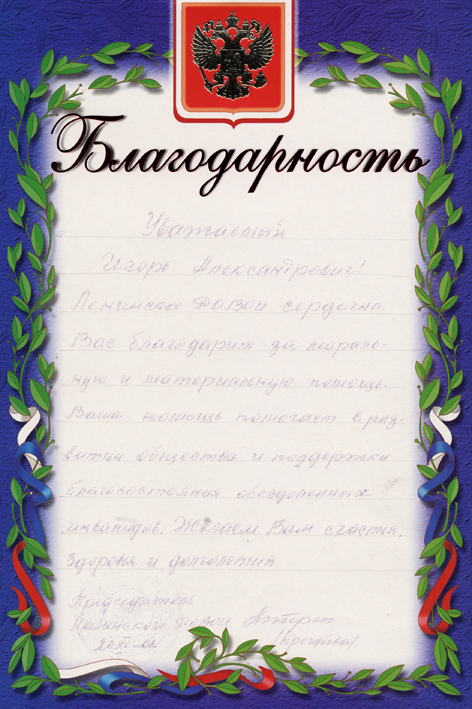 Благодарность
Уважаемый
Игорь Александрович!
Ленинское РОВОИ сердечно
Вас благодарит за мораль-
ную и материальную помощь.
Ваша помощь помогает в раз-
витии общества и поддержки
благосостояния обездоленных
инвалидов. Желаем Вам счастья,
здоровья и долголетия
Председатель
Ленинского РОВОИ